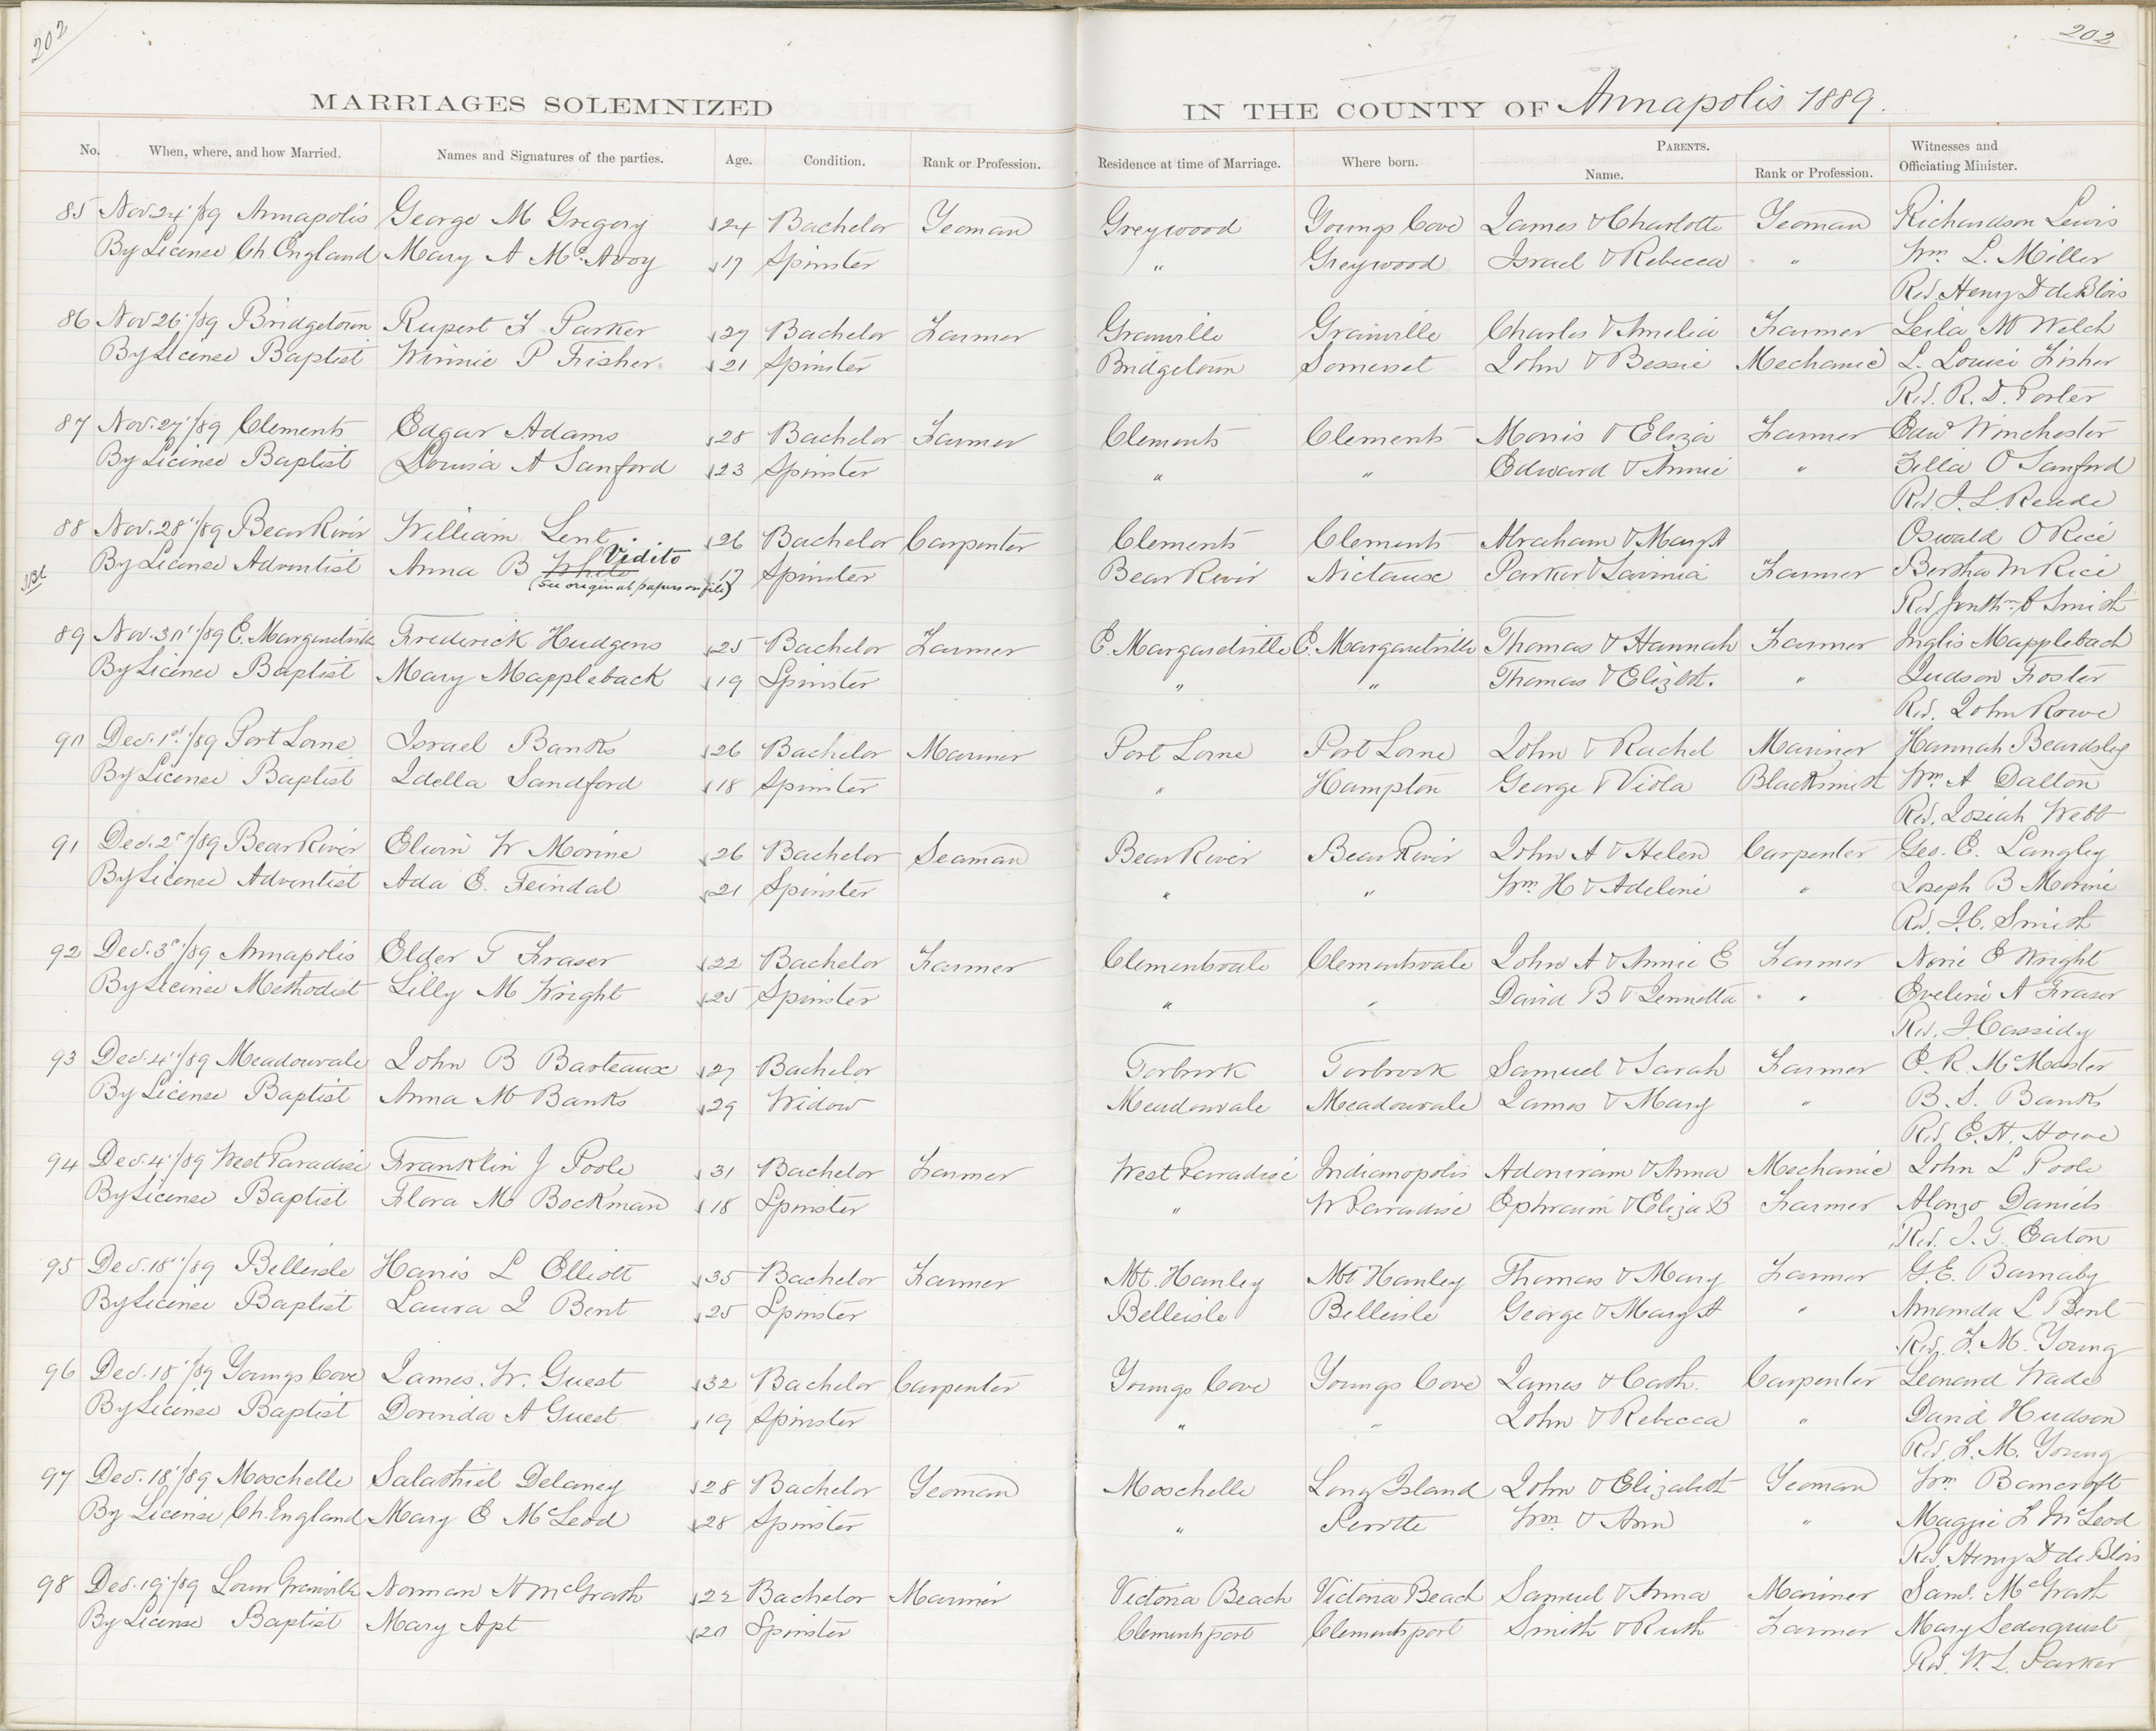 202
202
MARRIAGES SOLEMNIZED IN THE COUNTY OF Annapolis 1889.
No. When, where, and how Married. Names and Signatures of the parties. Age. Condition. Rank or Profession. Residence at time of Marriage. Where born. PARENTS. Name. Rank or Profession. Witnesses and Officiating Minister.
85 Nov. 24/89 Annapolis George M Gregory 24 Bachelor Yeoman Greywood Youngs Cove James & Charlotte Yeoman Richardson Lewis
By License Ch. England Mary A McAvoy 17 Spinster " Greywood Israel & Rebecca " Wm L. Miller
Rev. Henry D de Blois
86 Nov 26/89 Bridgetown Rupert F Parker 27 Bachelor Farmer Granville Granville Charles & Amelia Farmer Leila M Welch
By License Baptist Winnie P Fisher 21 Spinster Bridgetown Somerset John & Bessie Mechanic L. Louise Fisher
Rev. R. D. Porter
87 Nov. 27/89 Clements Edgar Adams 28 Bachelor Farmer Clements Clements Morris & Eliza Farmer Edw Winchester
By License Baptist Louisa A Sanford 23 Spinster " " Edward & Annie " Zilla O Sanford
Rev. J. L. Reade
88 Nov. 28/89 Bear River William Lent 26 Bachelor Carpenter Clements Clements Abraham & Mary A Oswald O Rice
By License Adventist Anna B White Vidito 17 Spinster Bear River Nictaux Parker & Lavinia Farmer Bertha M Rice
(See original papers on file)
Rev Jonthn A Smith
89 Nov. 30/89 E. Margaretville Frederick Hudgens 25 Bachelor Farmer E. Margaretville E. Margaretville Thomas & Hannah Farmer Inglis Mapplebach
By License Baptist Mary Mappleback 19 Spinster " " Thomas & Elizbt. " Judson Foster
Rev. John Rowe
90 Dec. 1st/89 Port Lorne Israel Banks 26 Bachelor Mariner Port Lorne Port Lorne John & Rachel Mariner Hannah Beardsley
By License Baptist Idella Sandford 18 Spinster " Hampton George & Viola Blacksmith Wm A Dalton
Rev. Josiah Webb
91 Dec. 2d/89 Bear River Elwin W Morine 26 Bachelor Seaman Bear River Bear River John A & Helen Carpenter Geo. E. Langley
By License Adventist Ada E. Feindal 21 Spinster " " Wm H & Adeline " Joseph B Morine
Rev. J. C. Smith
92 Dec. 3d/89 Annapolis Elder T Fraser 22 Bachelor Farmer Clementsvale Clementsvale John A & Annie E Farmer Norie E Wright
By License Methodist Lilly M Wright 25 Spinster " " David B & Jennetta " Eveline A Fraser
Rev. J Cassidy
93 Dec. 4/89 Meadowvale John B Barteaux 27 Bachelor Torbrook Torbrook Samuel & Sarah Farmer E. R. McMaster
By License Baptist Anna M Banks 29 Widow Meadowvale Meadowvale James & Mary " B. S. Banks
Rev. E. H. Howe
94 Dec. 4/89 West Paradise Franklin J Poole 31 Bachelor Farmer West Paradise Indianopolis Adoniram & Anna Mechanic John L Poole
By License Baptist Flora M Bockman 18 Spinster " W Paradise Ephraim & Eliza B Farmer Alonzo Daniels
Rev. J. T. Eaton
95 Dec. 18/89 Belleisle Harris L Elliott 35 Bachelor Farmer Mt. Hanley Mt Hanley Thomas & Mary Farmer G. E. Barnaby
By License Baptist Laura J Bent 25 Spinster Belleisle Belleisle George & Mary A " Amanda L Bent
Rev. F. M. Young
96 Dec. 18/89 Youngs Cove James. W. Guest 32 Bachelor Carpenter Youngs Cove Youngs Cove James & Cath. Carpenter Leonard Wade
By License Baptist Dorinda A Guest 19 Spinster " " John & Rebecca " David Hudson
Rev. F. M. Young
97 Dec. 18/89 Moschelle Salathiel Delaney 28 Bachelor Yeoman Moschelle Long Island John & Elizabeth Yeoman Wm Bancroft
By License Ch. England Mary E McLeod 28 Spinster " Perotte Wm & Ann " Maggie F McLeod
Rev. Henry D de Blois
98 Dec. 19/89 Lower Granville Norman H McGrath 22 Bachelor Mariner Victoria Beach Victoria Beach Samuel & Anna Mariner Saml. McGrath
By License Baptist Mary Apt 20 Spinster Clementsport Clementsport Smith & Ruth Farmer Mary Sederquest
Rev. W. L. Parker